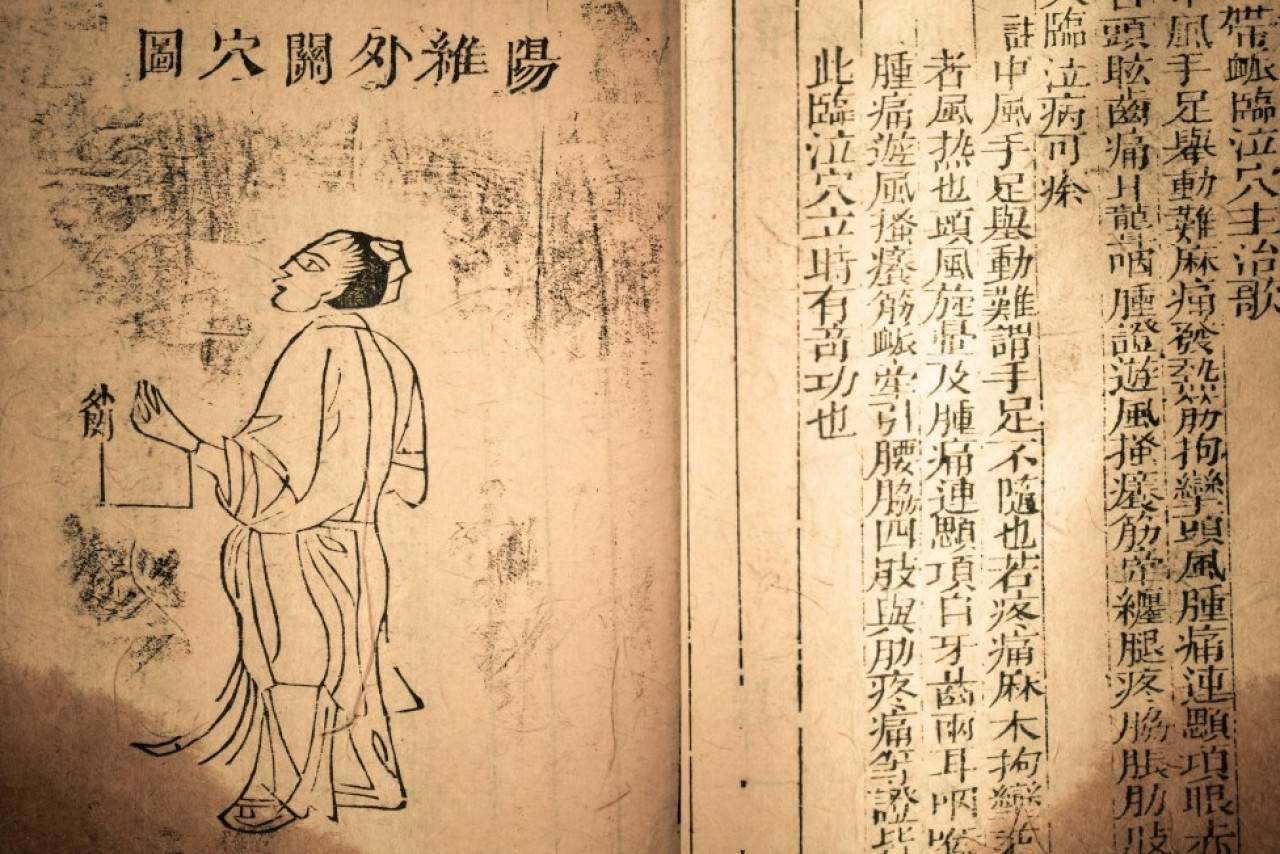 帶䘑臨泣穴主治歌
中風手足舉動難麻痛發熱筋拘攣頭風腫痛連顋項眼赤
頭眩齒痛耳聾咽腫證遊風搔癢筋牽纏腿疼脇脹肋肢
臨泣病可痊
註中風手足舉動難謂手足不隨也若疼痛麻木拘攣
者風熱也頭風旋暈及腫痛連顋項目牙齒兩耳咽喉
腫痛遊風搔癢筋䘑牽引腰脇四肢與肋疼痛等證皆
此臨泣穴立時有竒功也
陽維外關穴圖
外關